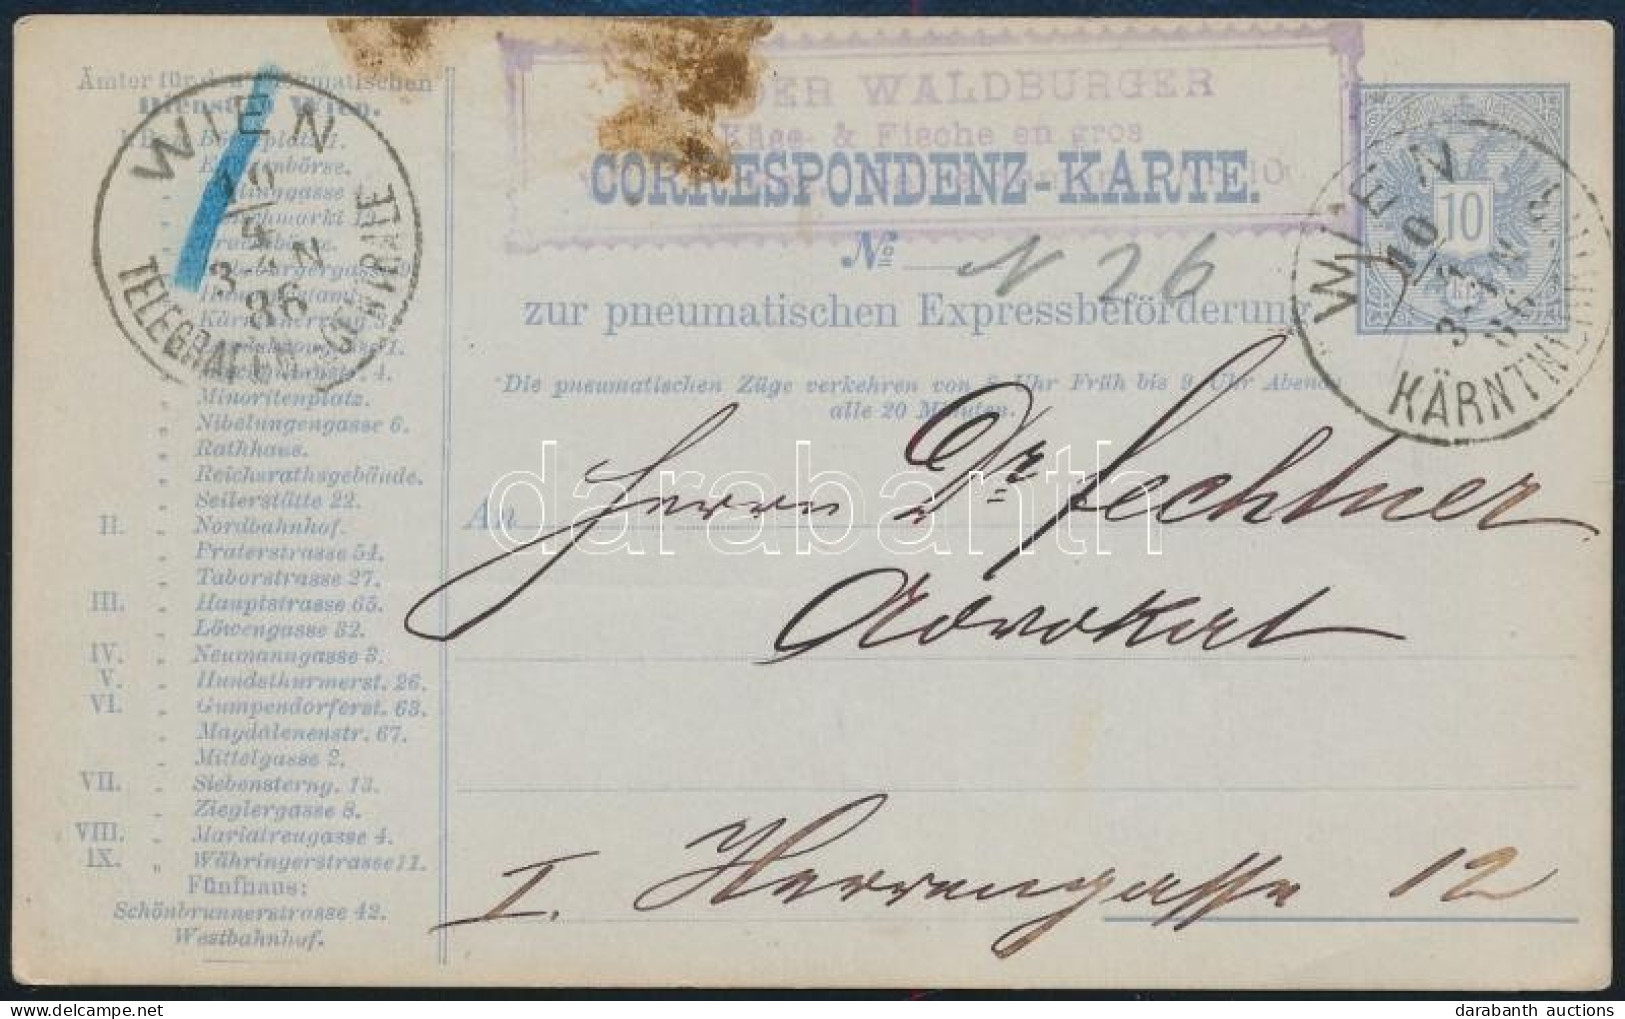 Ämter für den pneumatischen
Dienst in Wien.
Minoritenplatz.
Nibelungengasse 6.
Rathhaus.
Reichsrathsgebäude.
Seilerstätte 22.
II. „ Nordbahnhof.
„ Praterstrasse 54.
„ Taborstrasse 27.
III. „ Hauptstrasse 65.
„ Löwengasse 32.
IV. „ Neumanngasse 3.
V. „ Hundsthurmerst. 26.
VI. „ Gumpendorferst. 63.
„ Magdalenenstr. 67.
„ Mittelgasse 2.
VII. „ Siebensterng. 13.
„ Zieglergasse 8.
VIII. „ Mariatreugasse 4.
IX. „ Währingerstrasse 11.
Fünfhaus:
Schönbrunnerstrasse 42.
Westbahnhof.
WIEN
3-4 N
86
TELEGRAFEN-CENTRALE
WALDBURGER
Käse & Fische en gros
CORRESPONDENZ-KARTE.
No N 26
zur pneumatischen Expressbeförderung
Die pneumatischen Züge verkehren von 8 Uhr Früh bis 9 Uhr Abends
alle 20 Minuten.
10
WIEN
KÄRNTNERRING
An Herrn Dr. Fechtner
Advokat
I. Herrengasse 12
darabanth
darabanth auctions